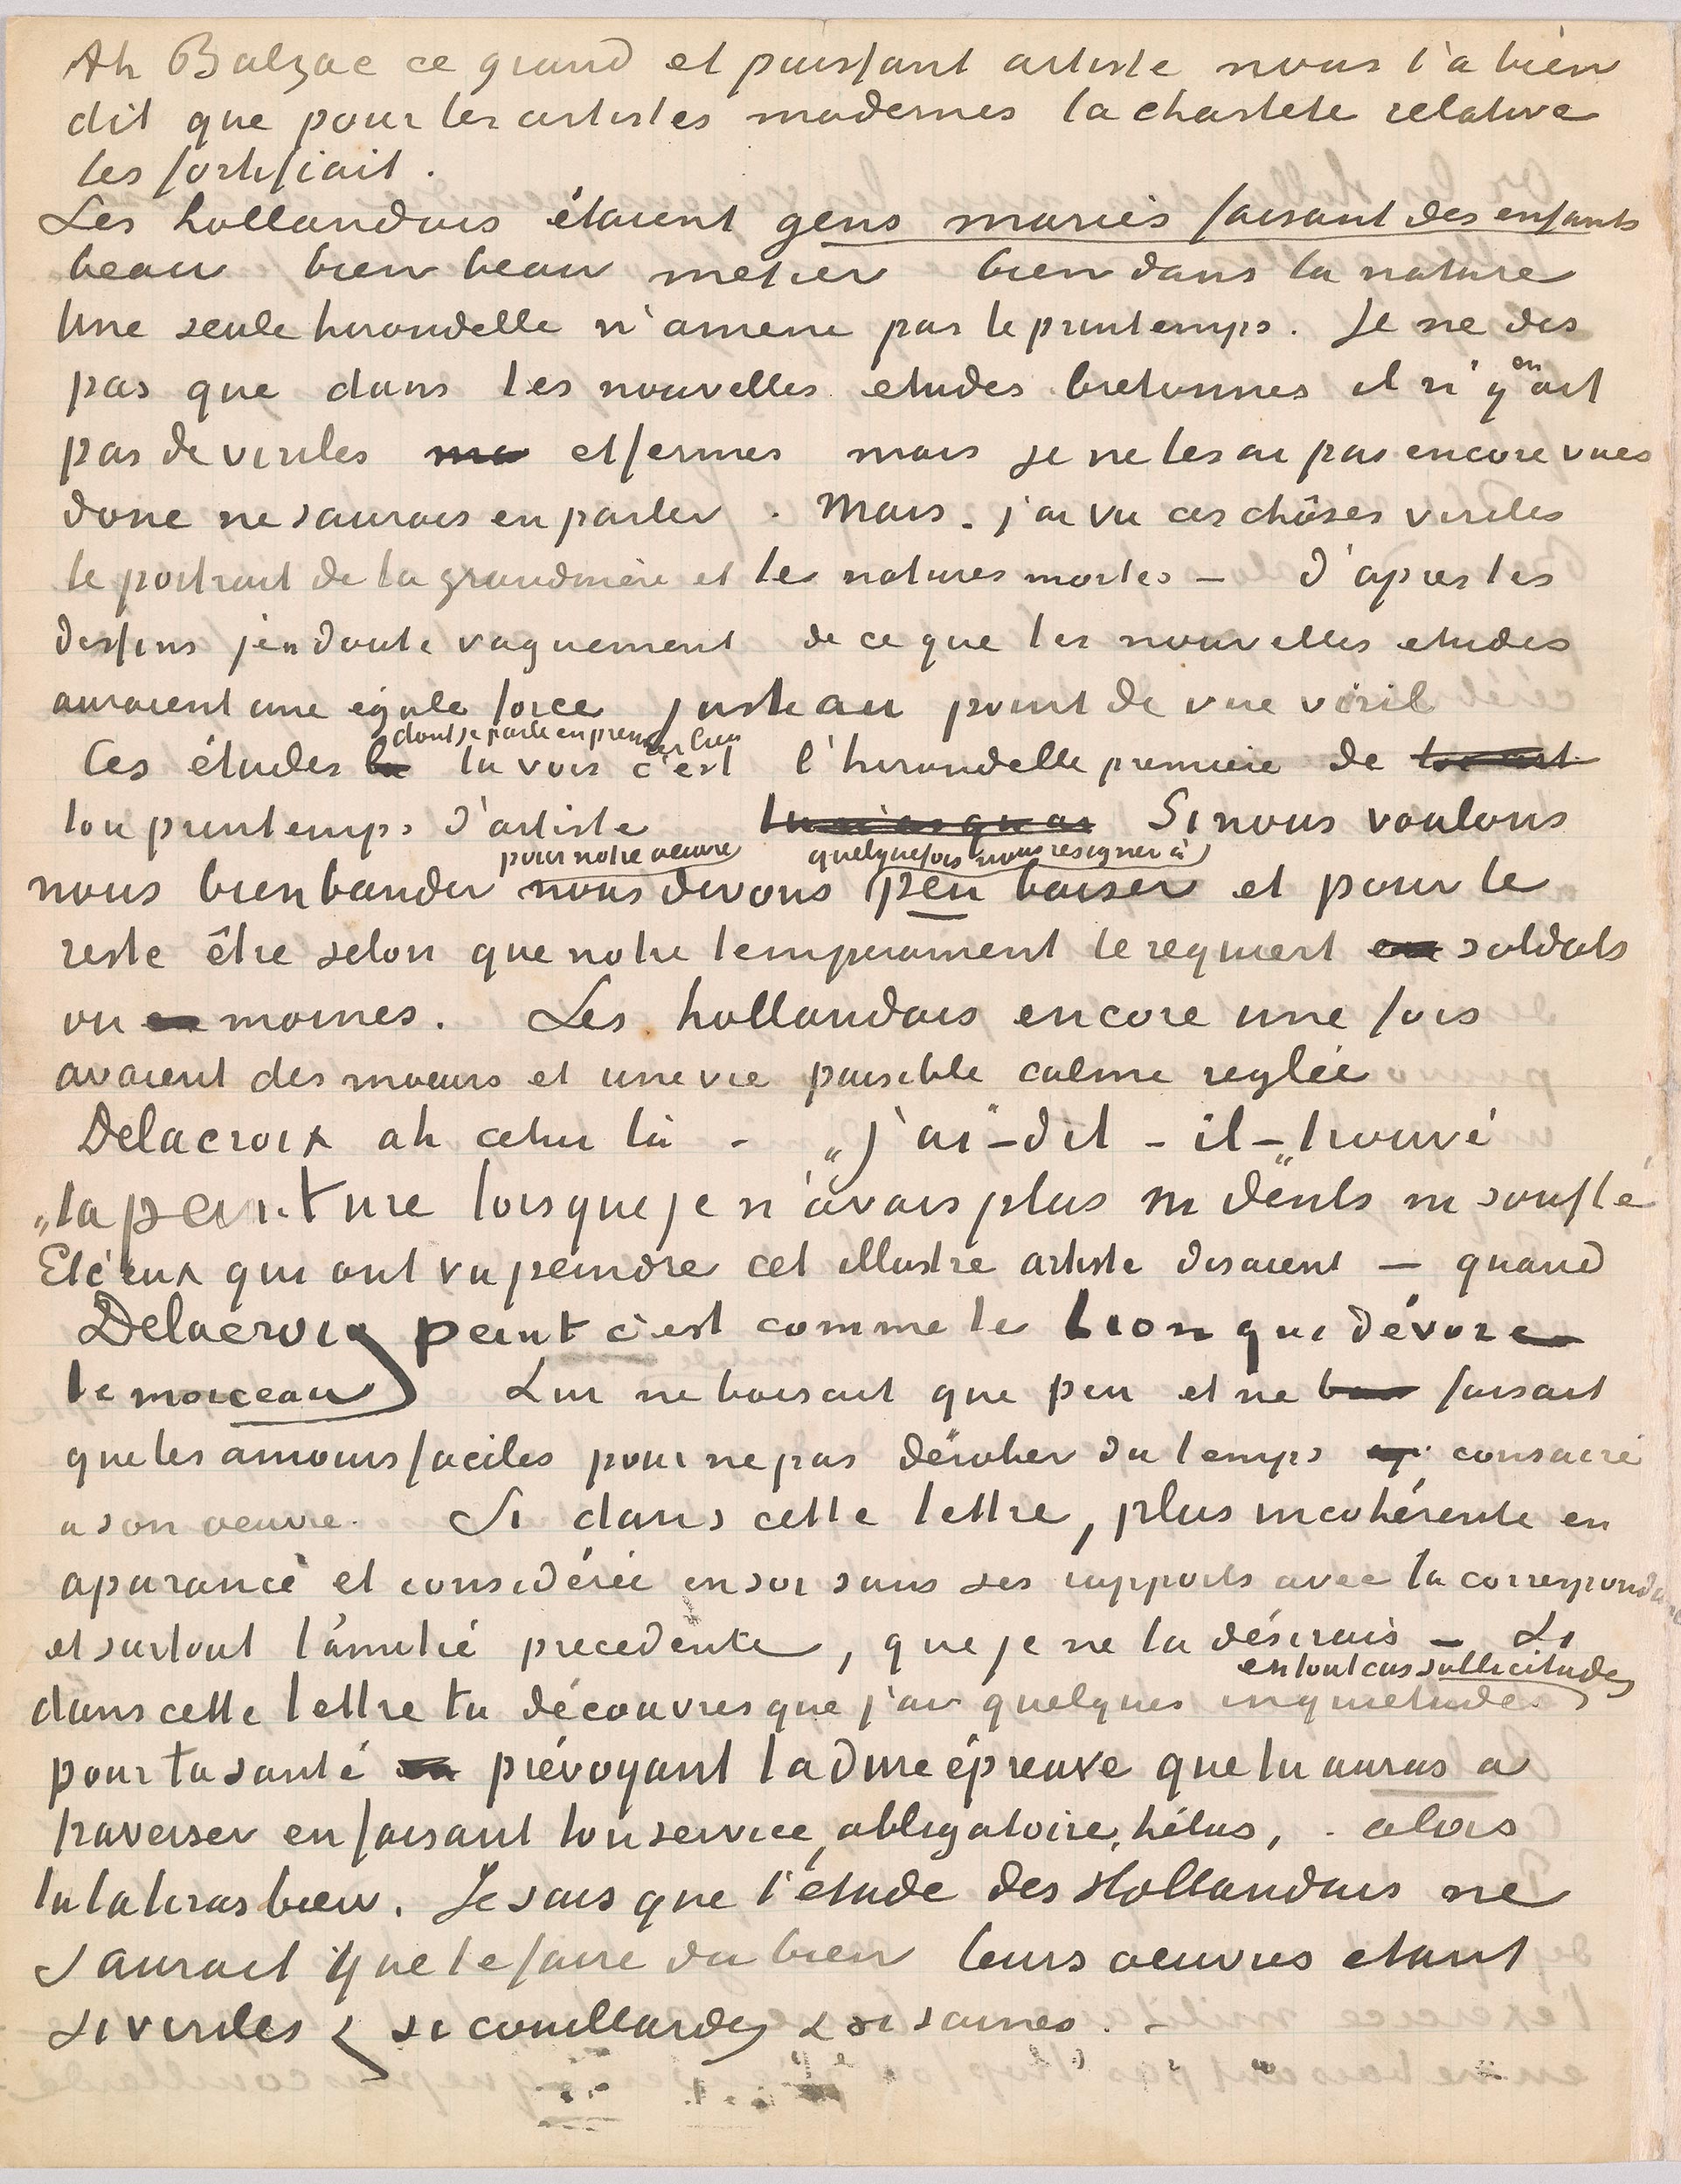 Ah Balzac ce grand et puissant artiste nous l'a bien
dit que pour les artistes modernes la chastete relative
les fortifiait.
Les hollandais étaient gens mariés faisant des enfants
beau bien beau metier bien dans la nature
Une seule hirondelle n'amene pas le printemps. Je ne dis
pas que dans les nouvelles etudes bretonnes il n'y en ait
pas de viriles ma et fermes mais je ne les ai pas encore vues
donc ne saurais en parler. Mais - j'ai vu ces chôses viriles
le portrait de la grandmère et les natures mortes — d'apres tes
dessins j'en doute vaguement de ce que les nouvelles etudes
auraient une égale force juste au point de vue viril
dont je parle en premier lieu
Ces études la tu vois c'est l'hirondelle première de
ton printemps d'artiste Si nous voulons
pour notre oeuvre quelquefois nous resigner à
nous bien bander nous devons peu baiser et pour le
reste être selon que notre temperament le requiert en soldats
ou en moines. Les hollandais encore une fois
avaient des moeurs et une vie paisible calme reglée
Delacroix ah celui là - „j'ai - dit - il - trouvé
„la peinture lorsque je n'avais plus ni dents ni soufle"
Et ceux qui ont vu peindre cet illustre artiste disaient — quand
Delacroix peint c'est comme le lion qui dévore
le morceau Lui ne baisait que peu et ne faisait
que les amours faciles pour ne pas dérober du temps consacré
a son oeuvre. Si dans cette lettre, plus incohérente en
aparance et considérée en soi sans ses rapports avec la correspondance
et surtout l'amitié precedente, que je ne la désirais — Si
en tout cas sollicitudes
dans cette lettre tu découvres que j'ai quelques inquietudes
pour ta santé en prévoyant la dure épreuve que tu auras a
traverser en faisant ton service, obligatoire, hélas, - alors
tu la liras bien. Je sais que l'étude des Hollandais ne
saurait que te faire du bien leurs oeuvres etant
si viriles & si couillardes & si saines. -